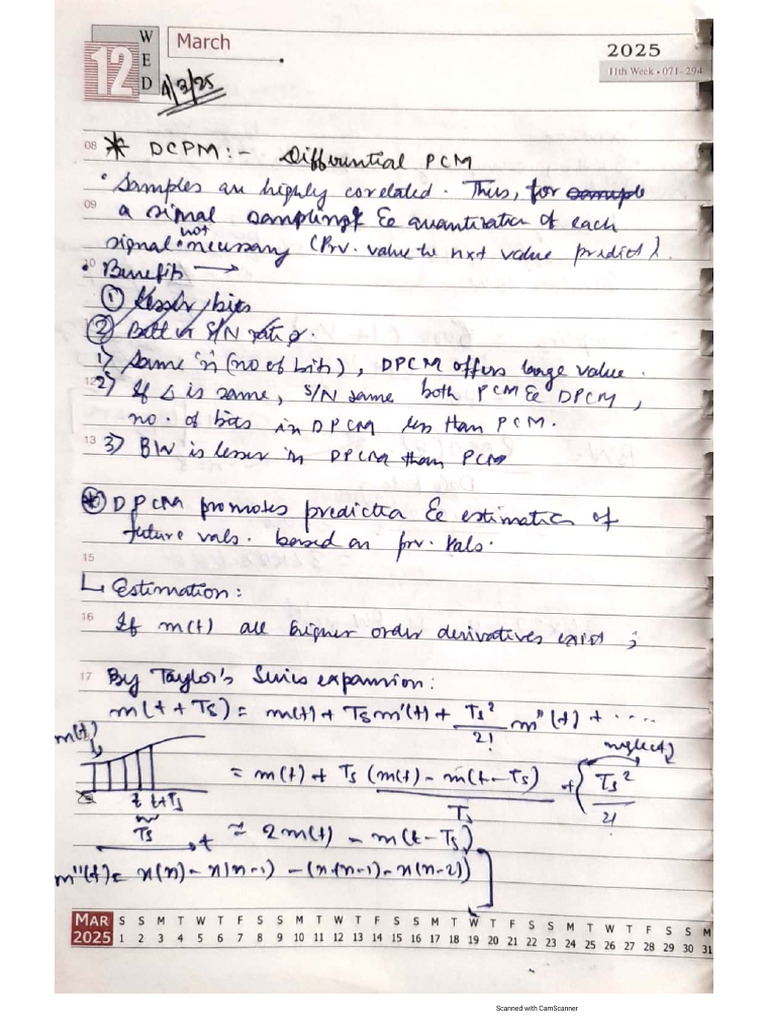 W
E
D
12
March
2025
11th Week • 071-294
4/3/25
08 * DCPM:- Differential PCM
• Samples are highly corelated. Thus, for sample
09 a signal sampling & quantization of each
signal not necessary (Prv. value to nxt value predict).
10 • Benefits →
① Lesser bits
② Better S/N ratio.
1) Same 'n' (no of bits), DPCM offers large value.
12 2) If Δ is same, S/N same both PCM & DPCM,
no. of bits in DPCM less than PCM.
13 3) BW is lesser in DPCM than PCM
* DPCM promotes prediction & estimation of
future vals. based on prv. vals.
15
↳ Estimation:
16 If m(t) all higher order derivatives exist ;
17 By Taylor's Series expansion:
m(t + Ts) = m(t) + Ts m'(t) + Ts²/2! m''(t) + ....
m(t)
neglect
= m(t) + Ts (m(t) - m(t-Ts))/Ts + { Ts²/2!
t t+Ts
Ts
t
≈ 2m(t) - m(t-Ts)
m''(t) = x(n) - x(n-1) - (x(n-1) - x(n-2))
MAR S S M T W T F S S M T W T F S S M T W T F S S M T W T F S S M
2025 1 2 3 4 5 6 7 8 9 10 11 12 13 14 15 16 17 18 19 20 21 22 23 24 25 26 27 28 29 30 31
Scanned with CamScanner